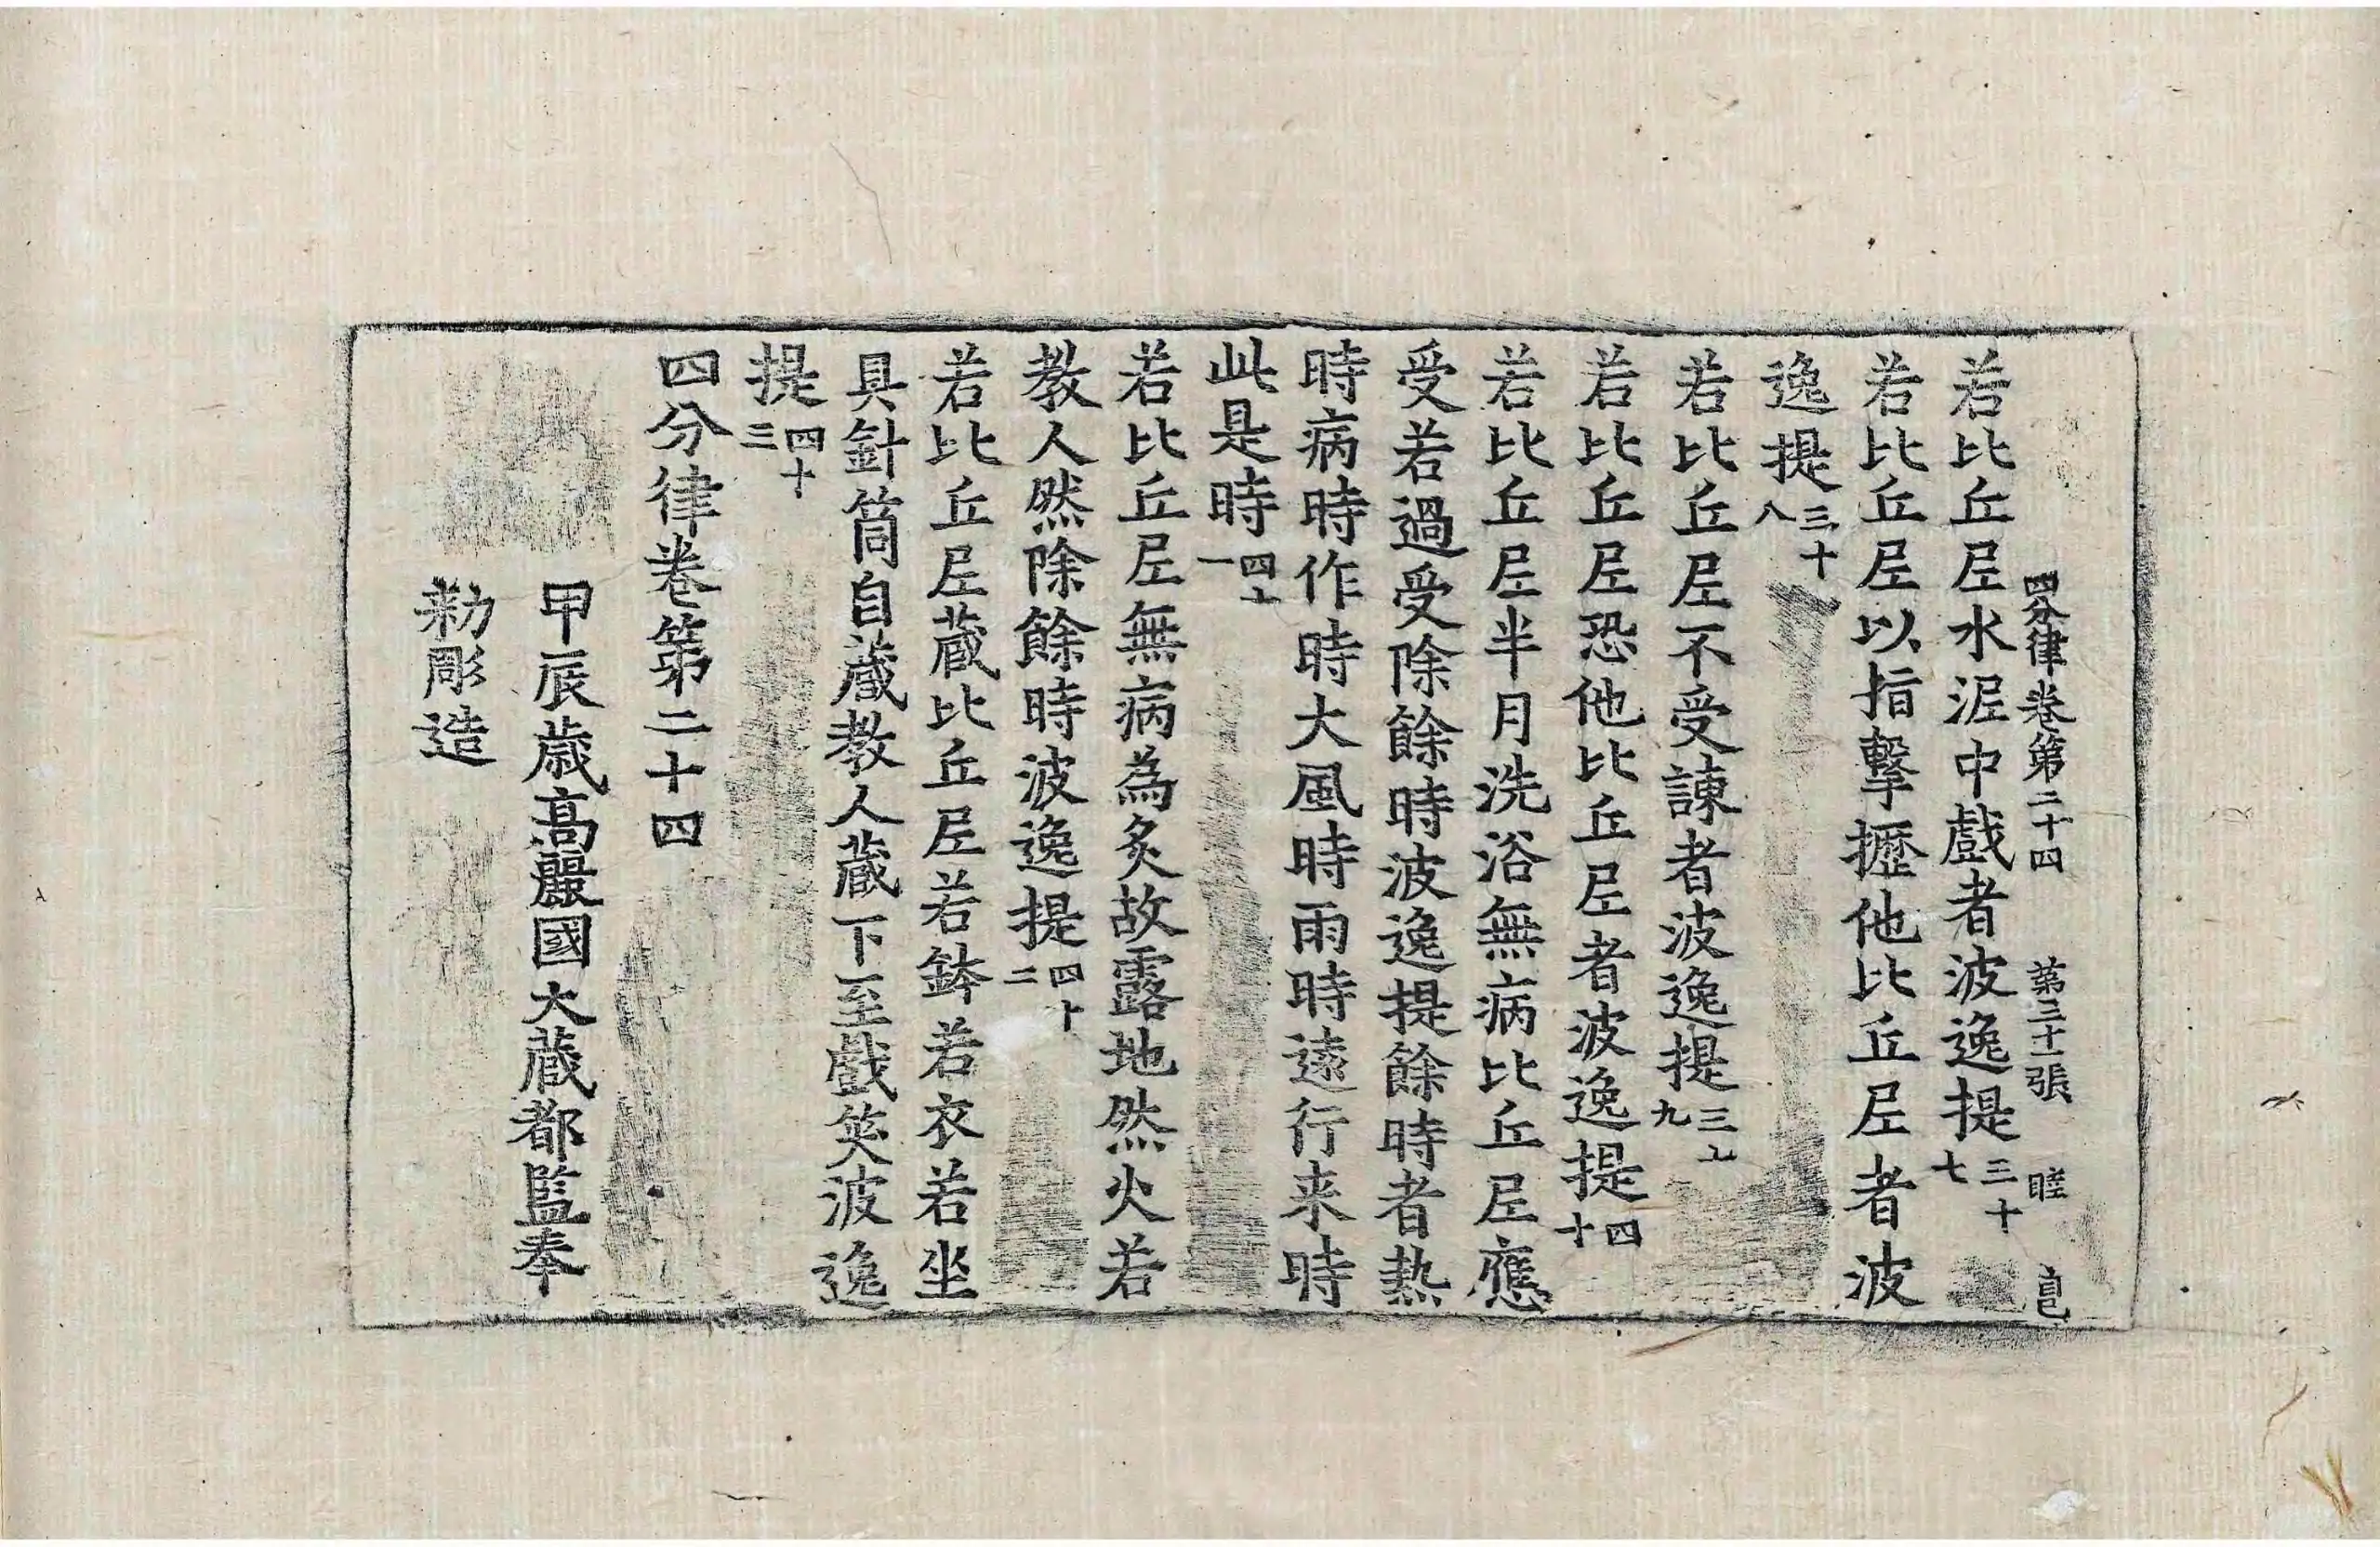 四分律卷第二十四 第三十一張 睦
若比丘尼水泥中戲者波逸提三十七
若比丘尼以指擊攊他比丘尼者波
逸提三十八
若比丘尼不受諫者波逸提三十九
若比丘尼恐他比丘尼者波逸提四十
若比丘尼半月洗浴無病比丘尼應
受若過受除餘時波逸提餘時者熱
時病時作時大風時雨時遠行来時
此是時四十一
若比丘尼無病為炙故露地然火若
教人然除餘時波逸提四十二
若比丘尼藏比丘尼若鉢若衣若坐
具針筒自藏教人藏下至戲笑波逸
提四十三
四分律卷第二十四
甲辰歲高麗國大藏都監奉
勅彫造